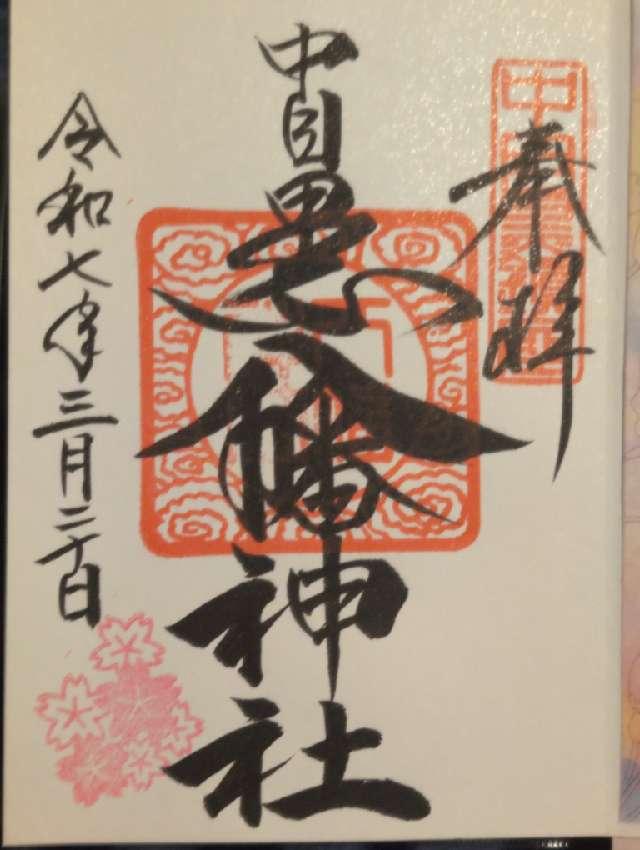 奉拝
中目黒八幡神社
令和七年三月二十日